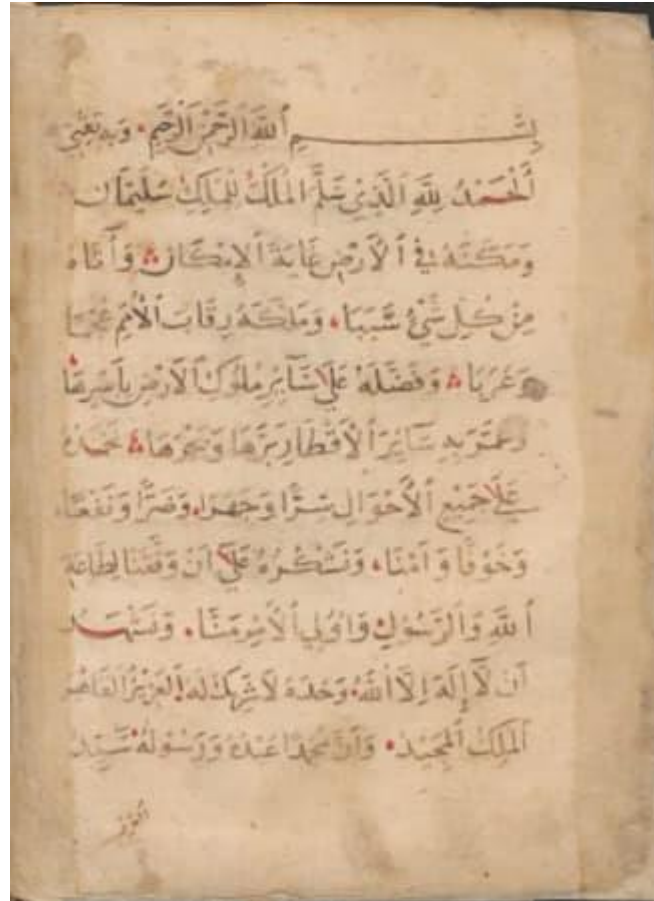 بِسْمِ ٱللَّهِ ٱلرَّحْمٰنِ ٱلرَّحِيمِ وَبِهِ ثِقَتِي
ٱلْحَمْدُ لِلَّهِ ٱلَّذِي سَلَّمَ ٱلْمُلْكَ لِلْمَلِكِ سُلَيْمَان
وَمَكَّنَهُ فِي ٱلْأَرْضِ غَايَةَ ٱلْإِمْكَانِ وَآتَاهُ
مِنْ كُلِّ شَيْءٍ سَبَبًا وَمَلَّكَهُ رِقَابَ ٱلْأُمَمِ عُجْمًا
وَعَرَبًا وَفَضَّلَهُ عَلَى سَآئِرِ مُلُوكِ ٱلْأَرْضِ بِأَسْرِهَا
وَعَمَّرَ بِهِ سَآئِرَ ٱلْأَقْطَارِ بَرِّهَا وَبَحْرِهَا نَحْمَدُهُ
عَلَى جَمِيعِ ٱلْأَحْوَالِ سِرًّا وَجَهْرًا وَضَرًّا وَنَفْعًا
وَخَوْفًا وَأَمْنًا وَنَشْكُرُهُ عَلَى أَنْ وَفَّقَنَا لِطَاعَةِ
ٱللَّهِ وَٱلرَّسُولِ وَأُولِي ٱلْأَمْرِ مِنَّا وَنَشْهَدُ
أَنْ لَا إِلَهَ إِلَّا ٱللَّهُ وَحْدَهُ لَا شَرِيكَ لَهُ ٱلْعَزِيزُ ٱلْقَاهِرُ
ٱلْمَلِكُ ٱلْمَجِيدُ وَأَنَّ مُحَمَّدًا عَبْدُهُ وَرَسُولُهُ سَيِّدُ